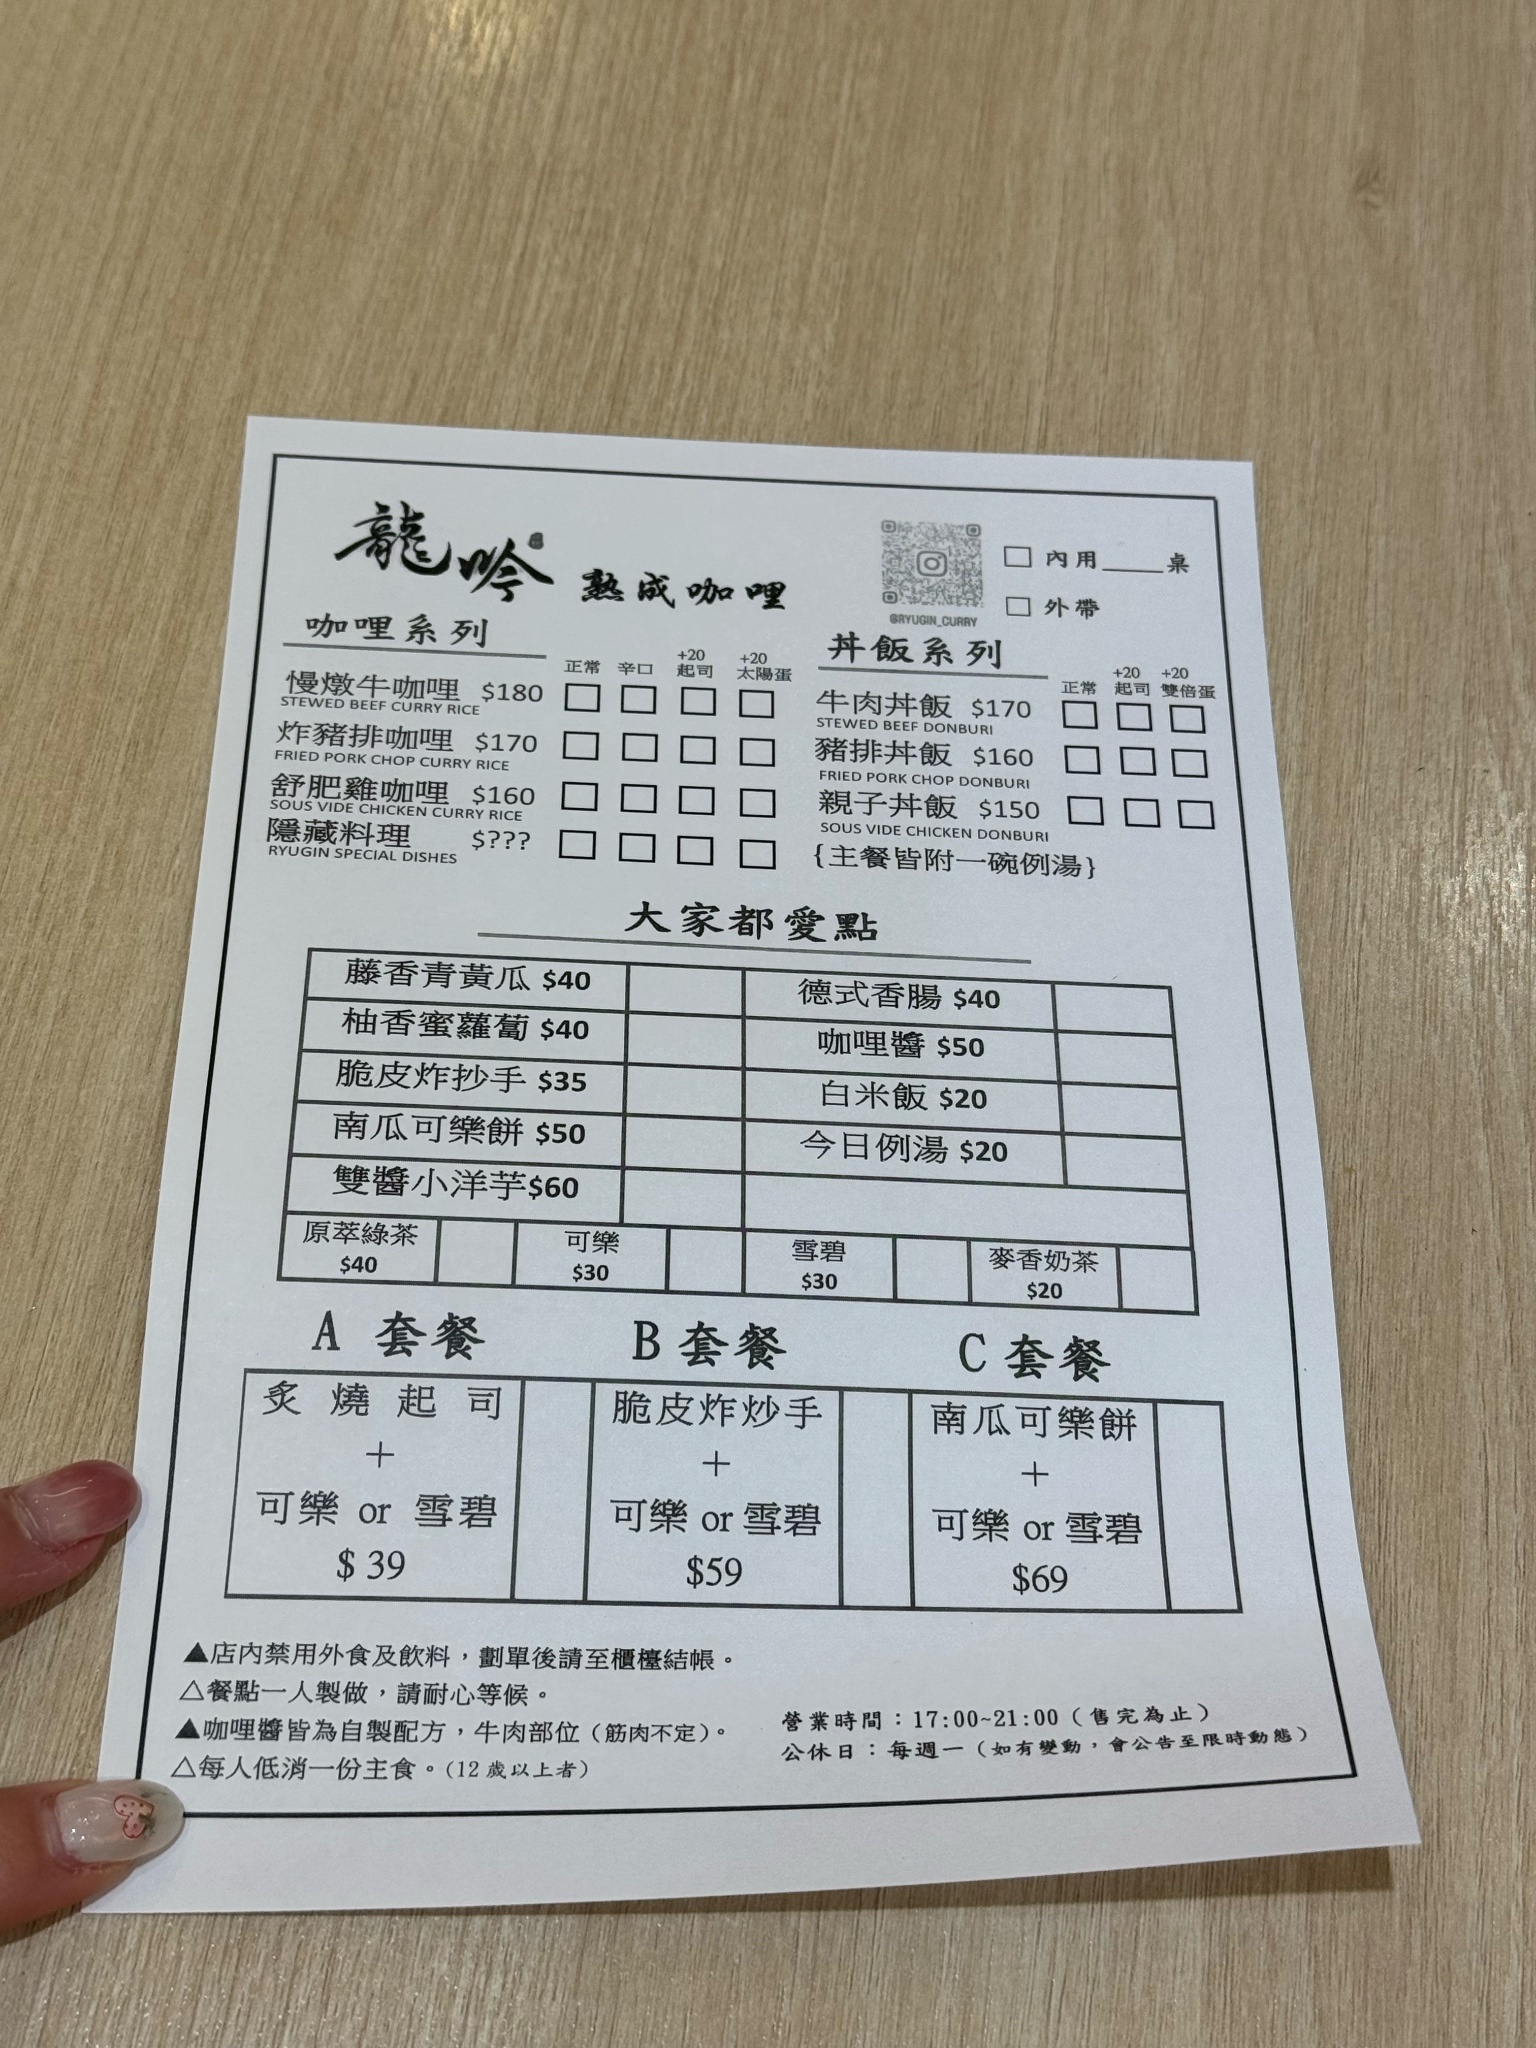 龍吟 熟成咖哩
@RYUGIN_CURRY
內用_____桌
外帶
咖哩系列
正常 辛口 +20 起司 +20 太陽蛋
慢燉牛咖哩 $180
STEWED BEEF CURRY RICE
炸豬排咖哩 $170
FRIED PORK CHOP CURRY RICE
舒肥雞咖哩 $160
SOUS VIDE CHICKEN CURRY RICE
隱藏料理 $???
RYUGIN SPECIAL DISHES
丼飯系列
正常 +20 起司 +20 雙倍蛋
牛肉丼飯 $170
STEWED BEEF DONBURI
豬排丼飯 $160
FRIED PORK CHOP DONBURI
親子丼飯 $150
SOUS VIDE CHICKEN DONBURI
{主餐皆附一碗例湯}
大家都愛點
藤香青黃瓜 $40
德式香腸 $40
柚香蜜蘿蔔 $40
咖哩醬 $50
脆皮炸抄手 $35
白米飯 $20
南瓜可樂餅 $50
今日例湯 $20
雙醬小洋芋$60
原萃綠茶 $40
可樂 $30
雪碧 $30
麥香奶茶 $20
A 套餐
炙燒起司
+
可樂 or 雪碧
$ 39
B 套餐
脆皮炸炒手
+
可樂 or 雪碧
$59
C 套餐
南瓜可樂餅
+
可樂 or 雪碧
$69
▲店內禁用外食及飲料，劃單後請至櫃檯結帳。
△餐點一人製做，請耐心等候。
▲咖哩醬皆為自製配方，牛肉部位（筋肉不定）。
△每人低消一份主食。(12 歲以上者)
營業時間：17:00~21:00（售完為止）
公休日：每週一（如有變動，會公告至限時動態）